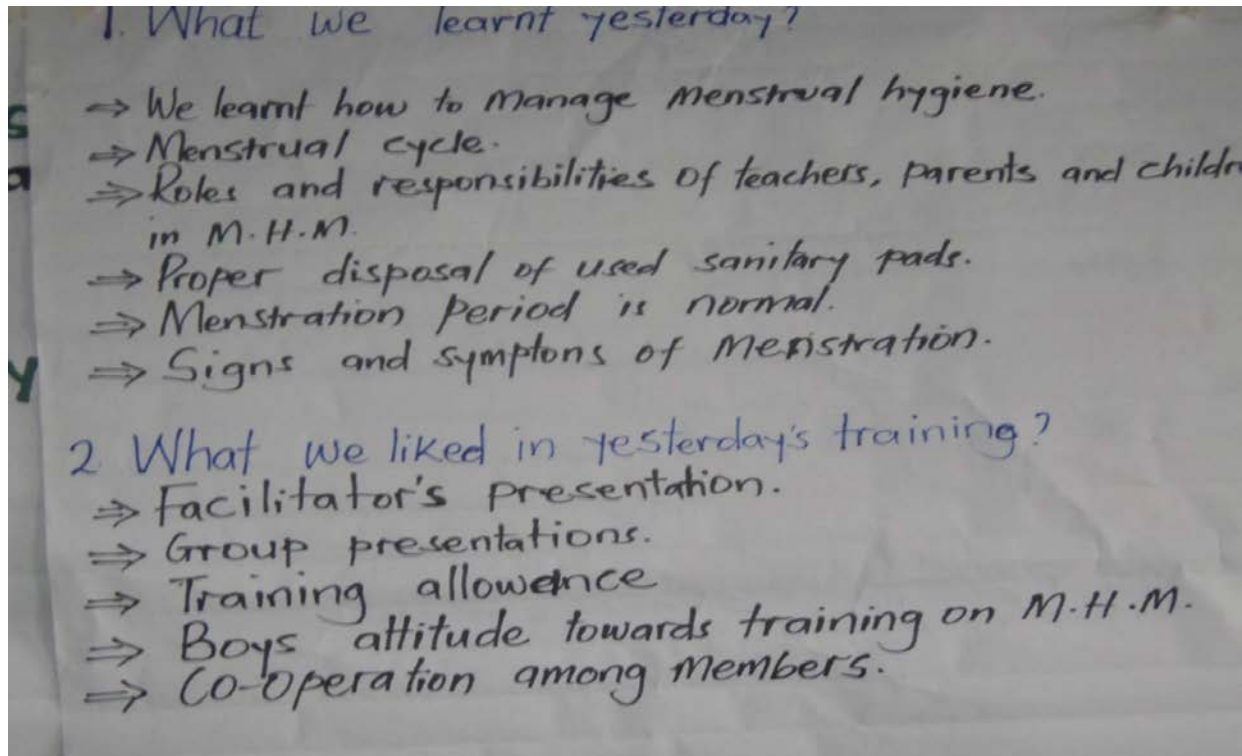 1. What we learnt yesterday?
⇒ We learnt how to manage menstrual hygiene.
⇒ Menstrual cycle.
⇒ Roles and responsibilities of teachers, parents and childr
in M.H.M.
⇒ Proper disposal of used sanitary pads.
⇒ Menstration Period is normal.
⇒ Signs and symptons of Menstration.
2 What we liked in yesterday's training?
⇒ Facilitator's presentation.
⇒ Group presentations.
⇒ Training allowance
⇒ Boys attitude towards training on M.H.M.
⇒ Co-operation among members.